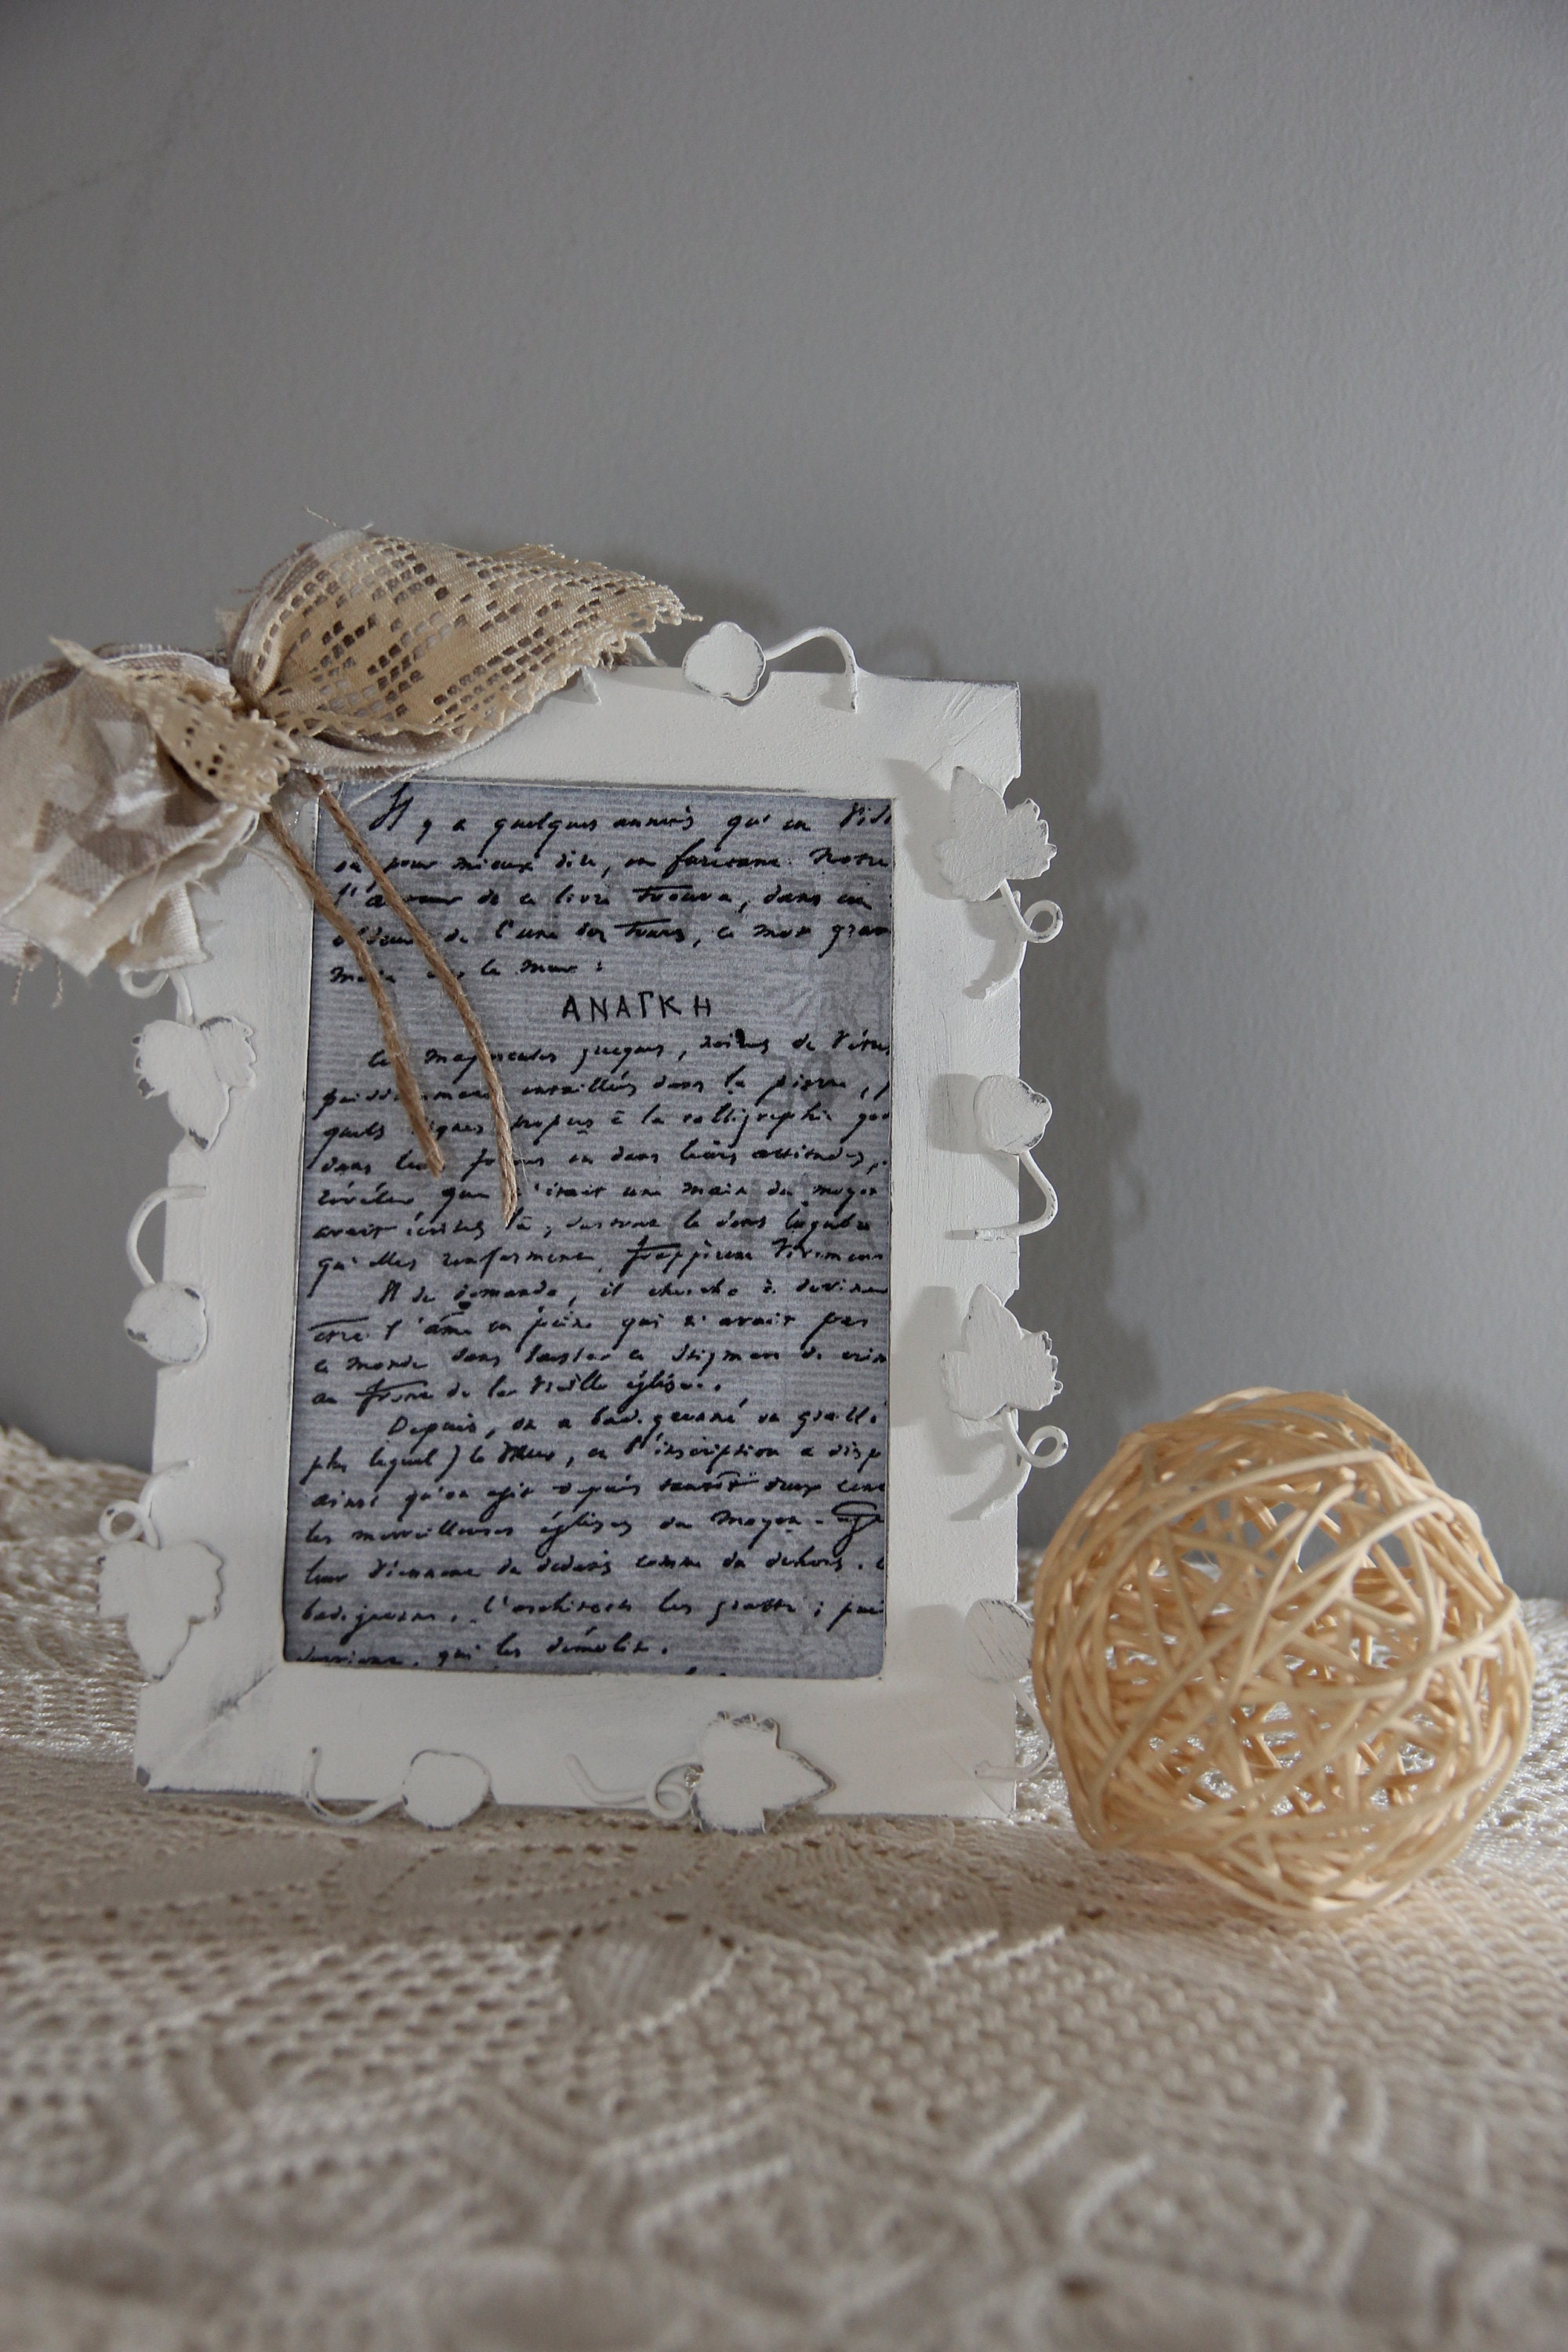 Il y a quelques années qu'en
ou pour mieux dire, en furetant Notre
l'auteur de ce livre trouva, dans un
de l'une des tours, ce mot grav
main sur le mur :
ΑΝΑΓΚΗ
Ces majuscules grecques, noires de vétus
entaillées dans la pierre,
quels signes propres à la calligraphie go
dans leurs formes et dans leurs attitudes,
révéler que c'était une main du moyen
avait écrites là, surtout le sens lugubre
qu'elles renferment, frappèrent vivemen
Il se demanda, il chercha à deviner
être l'âme en peine qui n'avait pas
ce monde sans laisser ce stigmate de crim
au front de la vieille église.
Depuis, on a badigeonné ou gratté
plus lequel) le mur, et l'inscription a disp
ainsi qu'on agit depuis tantôt deux cent
les merveilleuses églises du moyen-âge
leur viennent de dedans comme du dehors.
badigeonne, l'architecte les gratte ; pui
survient, qui les démolit.